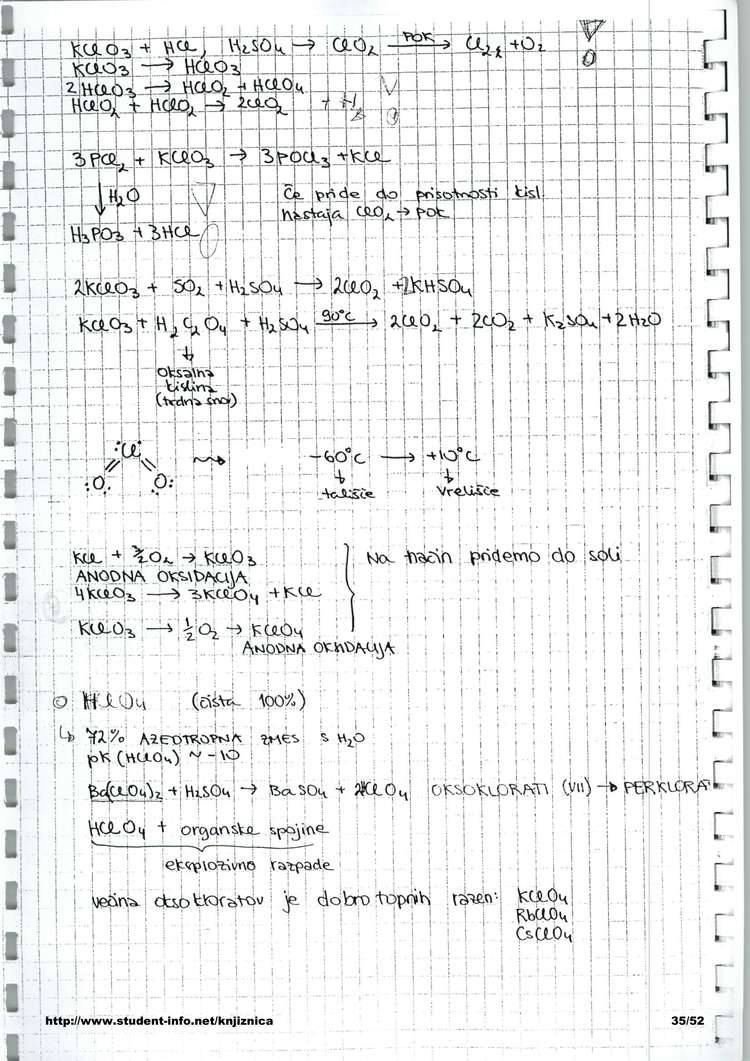 KClO3 + HCl, H2SO4 → ClO2 —POK→ Cl2 + O2
KClO3 → HClO3
2HClO3 → HClO2 + HClO4
HClO2 + HClO3 → 2ClO2 + H2
3PCl3 + KClO3 → 3POCl3 + KCl
↓ H2O
Če pride do prisotnosti kisl.
nastaja ClO2 → pok
H3PO3 + 3HCl
2KClO3 + SO2 + H2SO4 → 2ClO2 + 2KHSO4
KClO3 + H2C2O4 + H2SO4 —90°C→ 2ClO2 + 2CO2 + K2SO4 + 2H2O
↓
Oksalna
kislina
(trdna snov)
:Cl·
:O. O:
-60°C → +10°C
↓ ↓
tališče vrelišče
KCl + 3/2 O2 → KClO3
ANODNA OKSIDACIJA
4KClO3 → 3KClO4 + KCl
Na način pridemo do soli
KClO3 → 1/2 O2 → KClO4
ANODNA OKSIDACIJA
HClO4 (čista 100%)
↳ 72% AZEOTROPNA ZMES S H2O
pK (HClO4) ~ -10
Ba(ClO4)2 + H2SO4 → BaSO4 + 2HClO4 OKSOKLORATI (VII) → PERKLORAT
HClO4 + organske spojine
eksplozivno razpade
večina oksokloratov je dobro topnih razen: KClO4
RbClO4
CsClO4
http://www.student-info.net/knjiznica 35/52